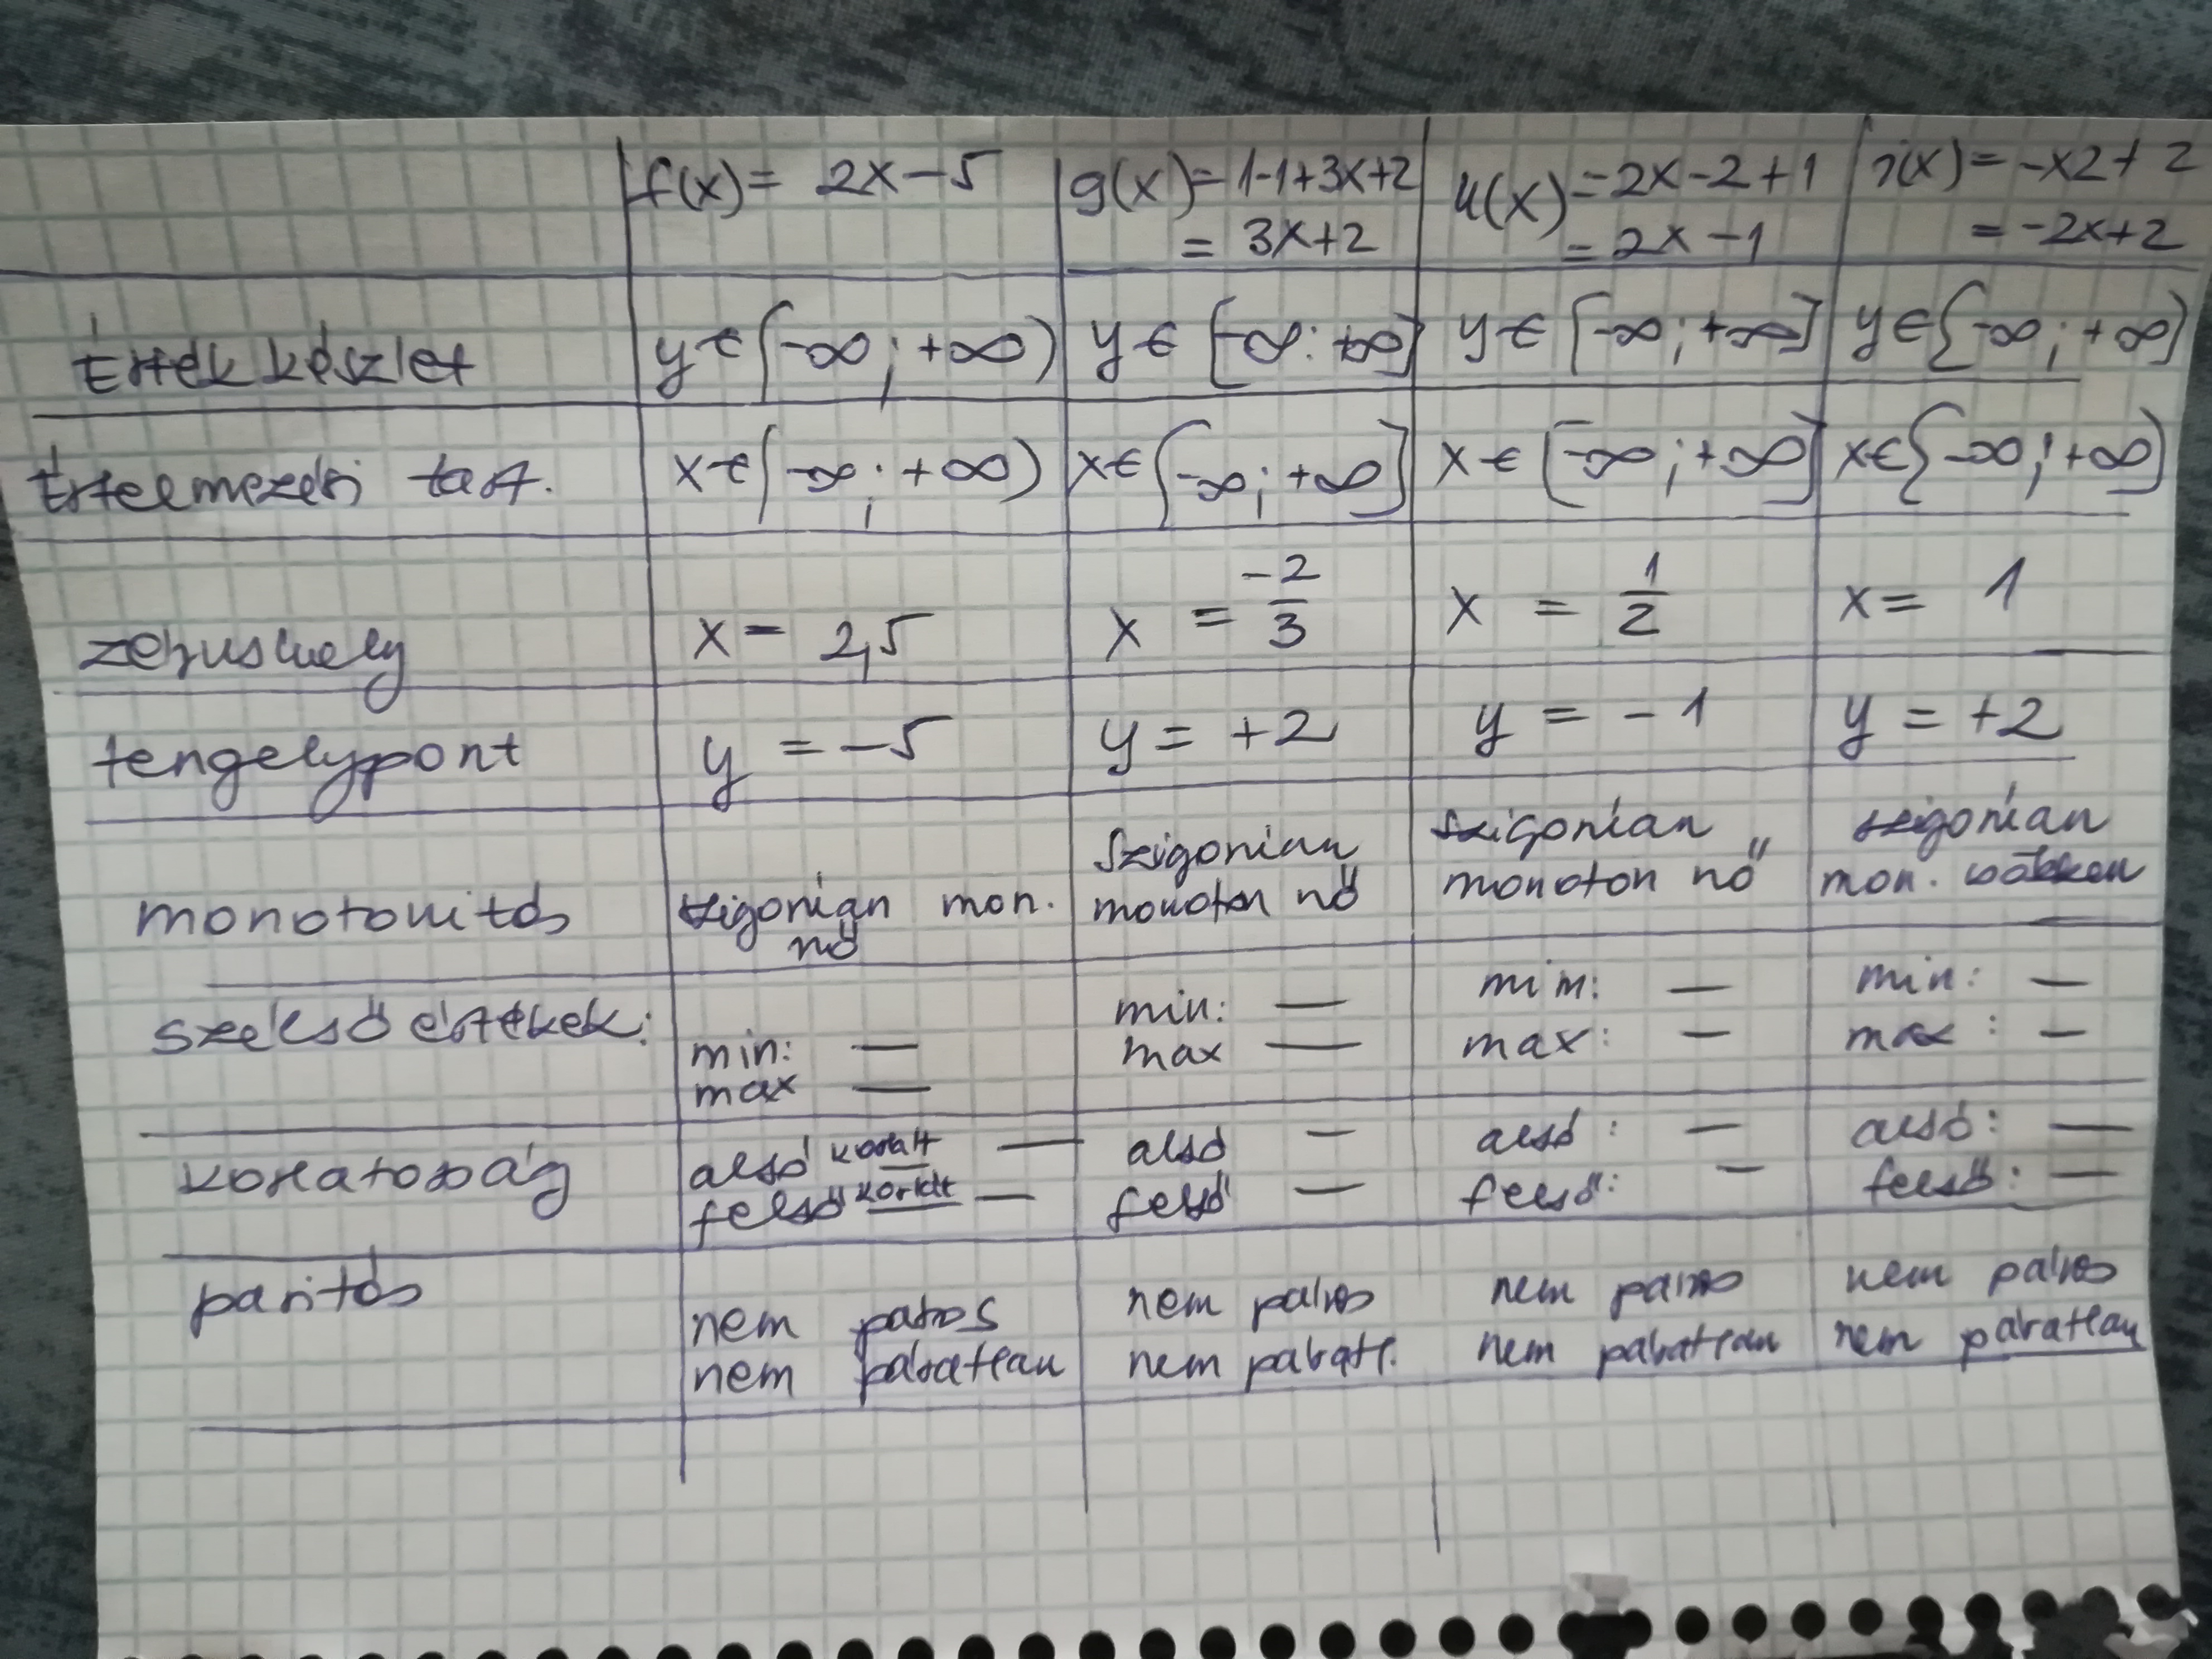 f(x) = 2x-5 g(x) = 1-1+3x+2 h(x) = 2x-2+1 i(x) = -x2+2
= 3x+2 = 2x-1 = -2x+2
Érték készlet y ∈ (-∞; +∞) y ∈ [-∞; +∞] y ∈ [-∞; +∞] y ∈ {-∞; +∞]
Értelmezési tart. x ∈ (-∞; +∞) x ∈ [-∞; +∞] x ∈ [-∞; +∞] x ∈ {-∞; +∞]
zérushely x = 2,5 x = -2/3 x = 1/2 x = 1
tengelypont y = -5 y = +2 y = -1 y = +2
monotonitás szigorúan mon. nő szigorúan monoton nő szigorúan monoton nő szigorúan mon.
szélső értékek: min: — max — min: — max — min: — max: — min: — max: —
korlátosság alsó korlát — felső korlát — alsó — felső — alsó: — felső: — alsó: — felső: —
paritás nem páros nem páratlan nem páros nem páratl. nem páros nem páratlan nem páros nem páratlan